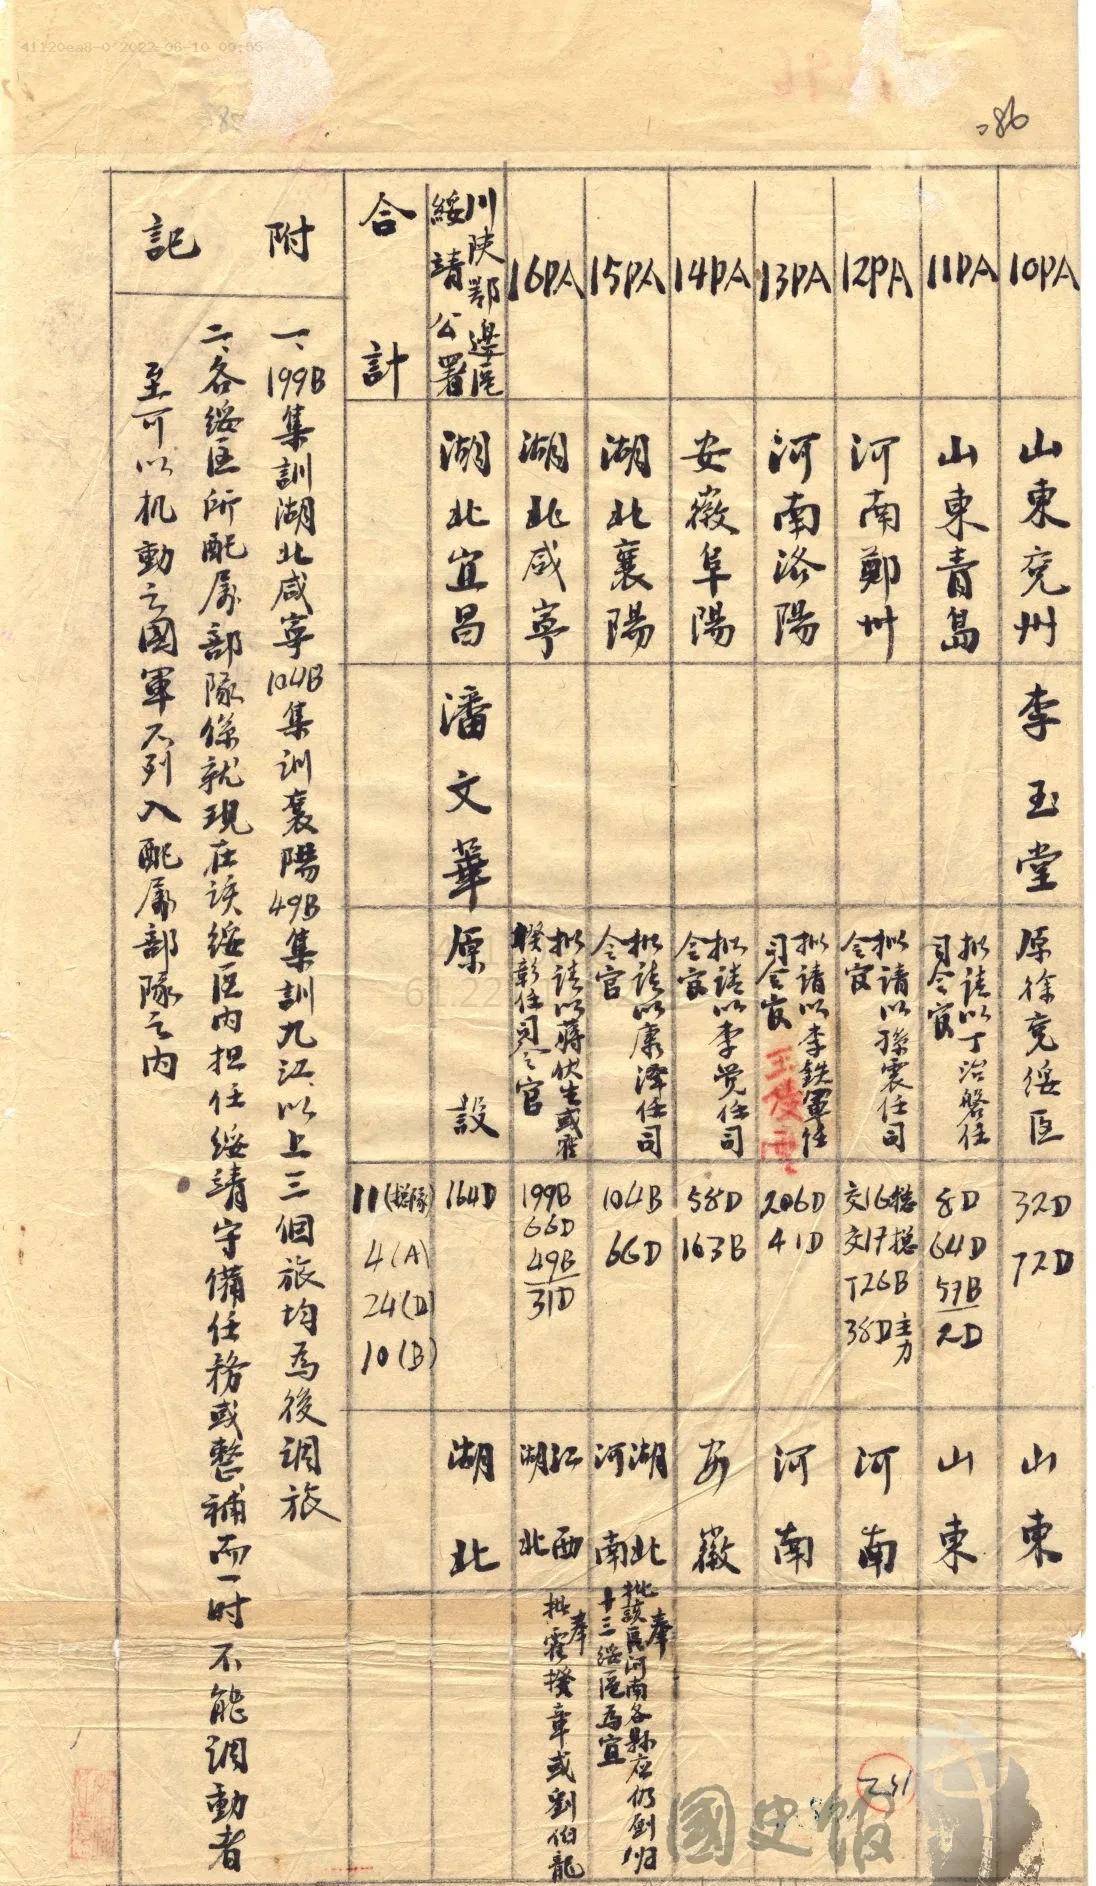 41120ea8-0 2022-06-10 09:05
286
10PA
山東兗州
李玉堂
原徐兗綏區
32D
72D
山東
11PA
山東青島
擬請以丁治磐任
司令官
8D
64D
57B
2D
山東
12PA
河南鄭州
擬請以孫震任司
令官
交16總
交17總
T26B
38D主力
河南
13PA
河南洛陽
擬請以李鉄軍任
司令官
王凌雲
206D
41D
河南
14PA
安徽阜陽
擬請以李觉任司
令官
58D
163B
安徽
15PA
湖北襄陽
擬請以康澤任司
令官
104B
66D
湖北
河南
奉
批該區河南各縣应仍劃归
十三綏區為宜
16PA
湖北咸寧
擬請以蔣伏生或霍
揆彰任司令官
199B
66D
49B
31D
江西
湖北
奉
批霍揆章或劉伯龍
川陝鄂邊區
綏靖公署
湖北宜昌
潘文華
原設
164D
湖北
合計
11(總隊)
4(A)
24(D)
10(B)
附記
一、199B集訓湖北咸寧104B集訓襄陽49B集訓九江、以上三個旅均為後調旅
二、各綏区所配屬部隊係就現在該綏区內担任綏靖守備任務或整補而一时不能調動者
至可以机動之國軍不列入配屬部隊之內
251
國史館